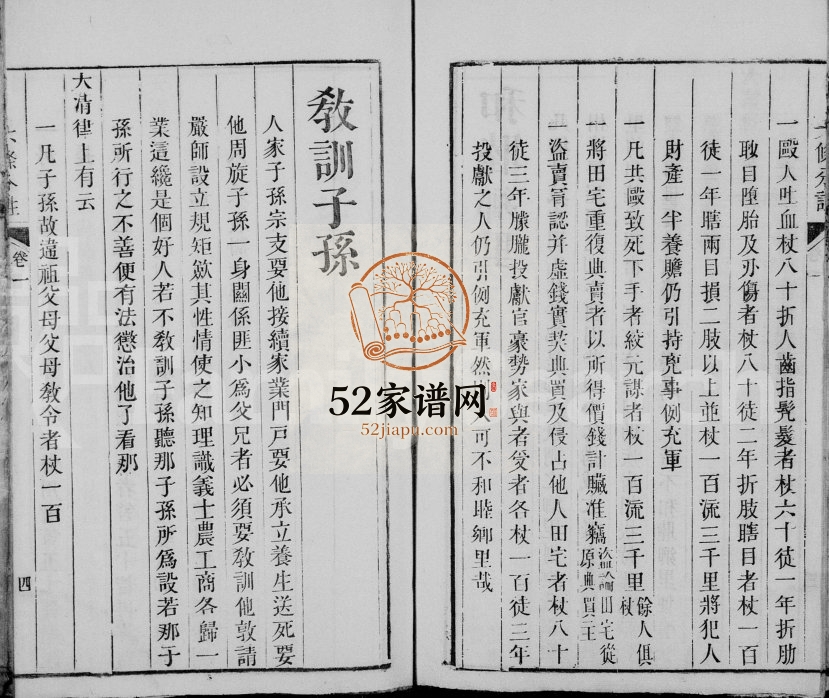 一毆人吐血杖八十折人齒指髡髮者杖六十徒一年折肋
眇目墮胎及刃傷者杖八十徒二年折肢瞎目者杖一百
徒一年瞎兩目損二肢以上並杖一百流三千里將犯人
財產一半養贍仍引持兇事例充軍
一凡共毆致死下手者絞元謀者杖一百流三千里餘人俱杖
一將田宅重復典賣者以所得價錢計贓准竊盜論田宅從原典買主
一盜賣冐認并虛錢實契典買及侵占他人田宅者杖八十
徒三年朦朧投獻官豪勢家與者受者各杖一百徒三年
投獻之人仍引例充軍然 可不和睦鄉里哉
教訓子孫
人家子孫宗支要他接續家業門戸要他承立養生送死要
他周旋子孫一身關係匪小爲父兄者必須要教訓他敦請
嚴師設立規矩斂其性情使之知理識義士農工商各歸一
業這纔是個好人若不教訓子孫聽那子孫所爲設若那子
孫所行之不善便有法懲治他了看那
大清律上有云
一凡子孫故違祖父母父母教令者杖一百
卷一
四
52家谱网
52jiapu.com